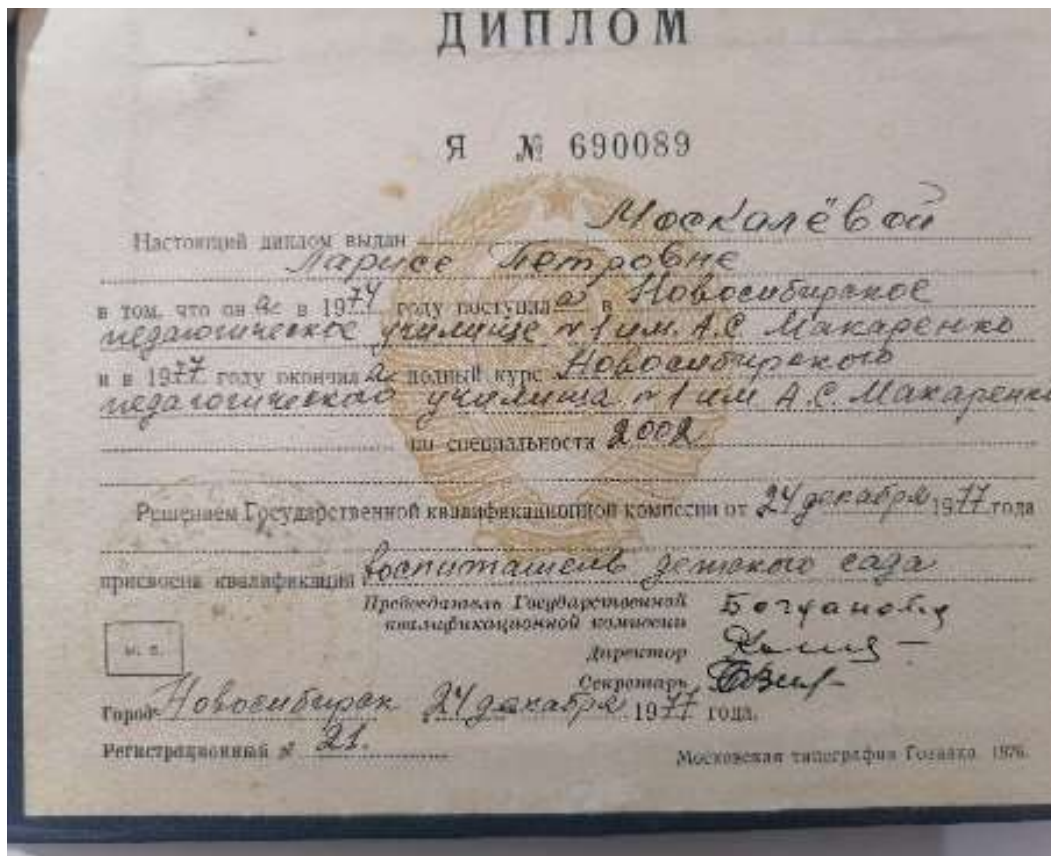 ДИПЛОМ
Я № 690089
Настоящий диплом выдан Москалёвой
Ларисе Петровне
в том, что он а в 1974 году поступил а в Новосибирское
педагогическое училище №1 им. А.С Макаренко
и в 1977 году окончил а полный курс Новосибирского
педагогического училища №1 им А.С. Макаренко
по специальности 2002
Решением Государственной квалификационной комиссии от 24 декабря 1977 года
присвоена квалификация воспитатель детского сада
Председатель Государственной
квалификационной комиссии
Директор
Секретарь
М. П.
Город Новосибирск 24 декабря 1977 года.
Регистрационный № 21.
Московская типография Гознака. 1976.